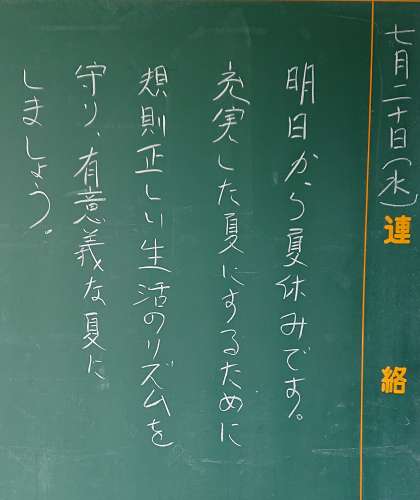 七月二十日(水)
連絡
明日から夏休みです。
充実した夏にするために
規則正しい生活のリズムを
守り、有意義な夏に
しましょう。